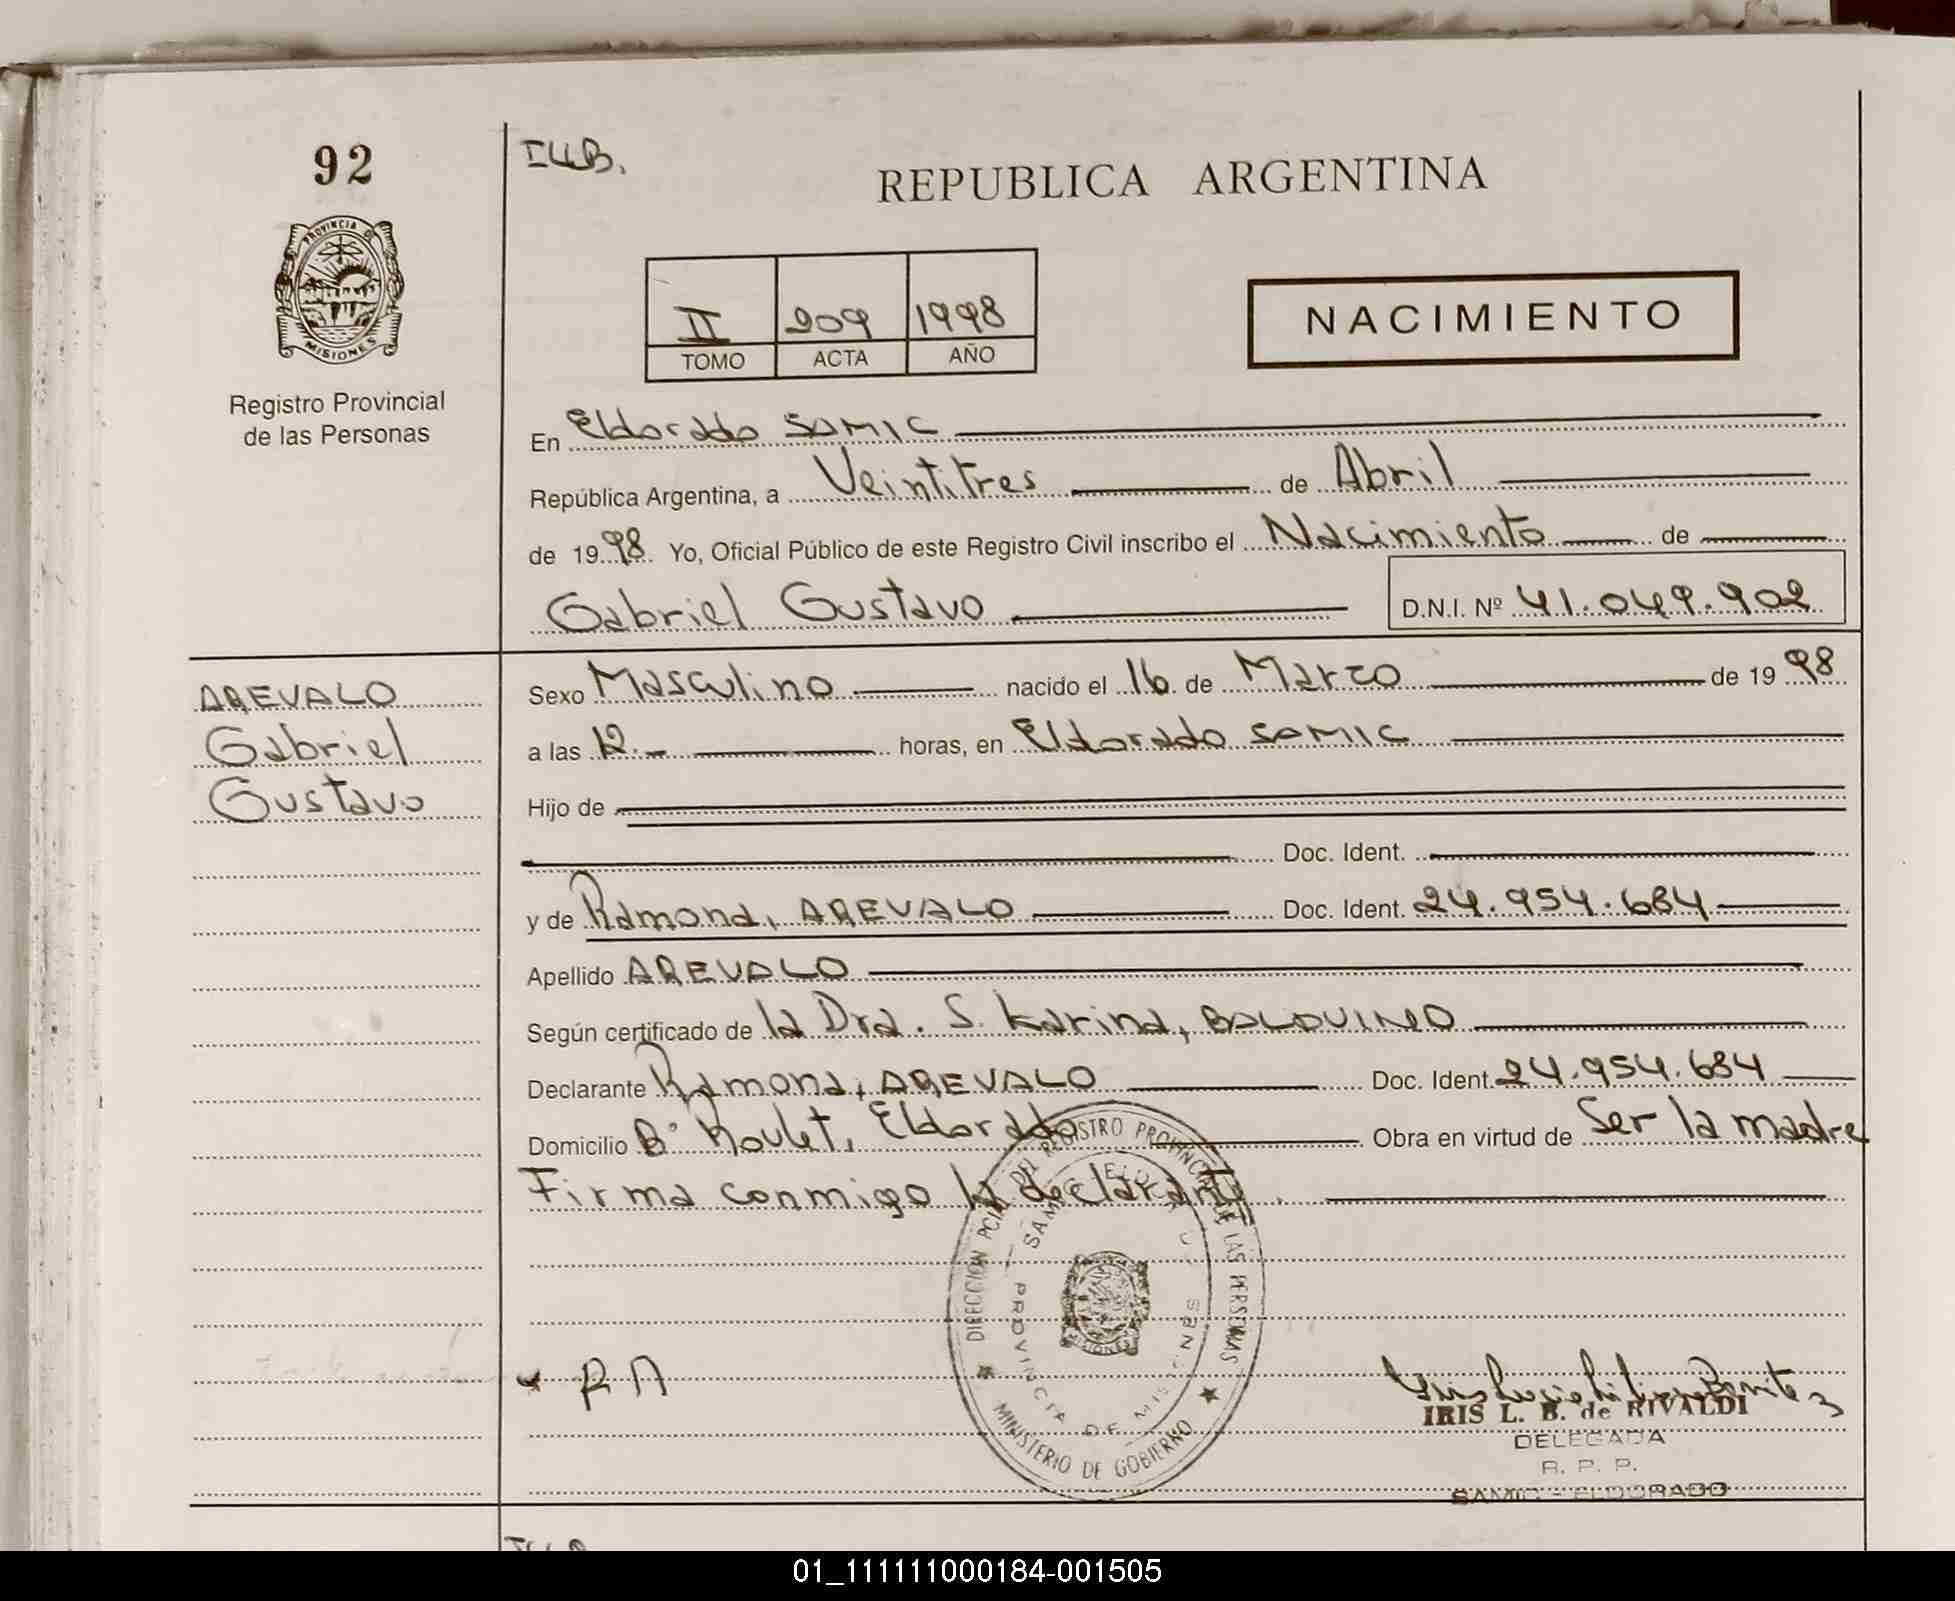 92
I4B.
REPUBLICA ARGENTINA
PROVINCIA DE
MISIONES
Registro Provincial
de las Personas
II 209 1998
TOMO ACTA AÑO
NACIMIENTO
En Eldorado SAMIC
República Argentina, a Veintitres de Abril
de 1998 Yo, Oficial Público de este Registro Civil inscribo el Nacimiento de
Gabriel Gustavo D.N.I. Nº 41.049.902
AREVALO
Gabriel
Gustavo
Sexo Masculino nacido el 16 de Marzo de 1998
a las 12.- horas, en Eldorado SAMIC
Hijo de
Doc. Ident.
y de Ramona, AREVALO Doc. Ident. 24.954.684
Apellido AREVALO
Según certificado de la Dra. S. Karina, BALDUINO
Declarante Ramona, AREVALO Doc. Ident. 24.954.684
Domicilio Bº Roulet, Eldorado Obra en virtud de Ser la madre
Firma conmigo la declarante.
DIRECCION PCIAL. DEL REGISTRO PROVINCIAL DE LAS PERSONAS
PROVINCIA DE MISIONES
MINISTERIO DE GOBIERNO
R A
IRIS L. B. de RIVALDI
DELEGADA
R. P. P.
SAMIC - ELDORADO
01_111111000184-001505